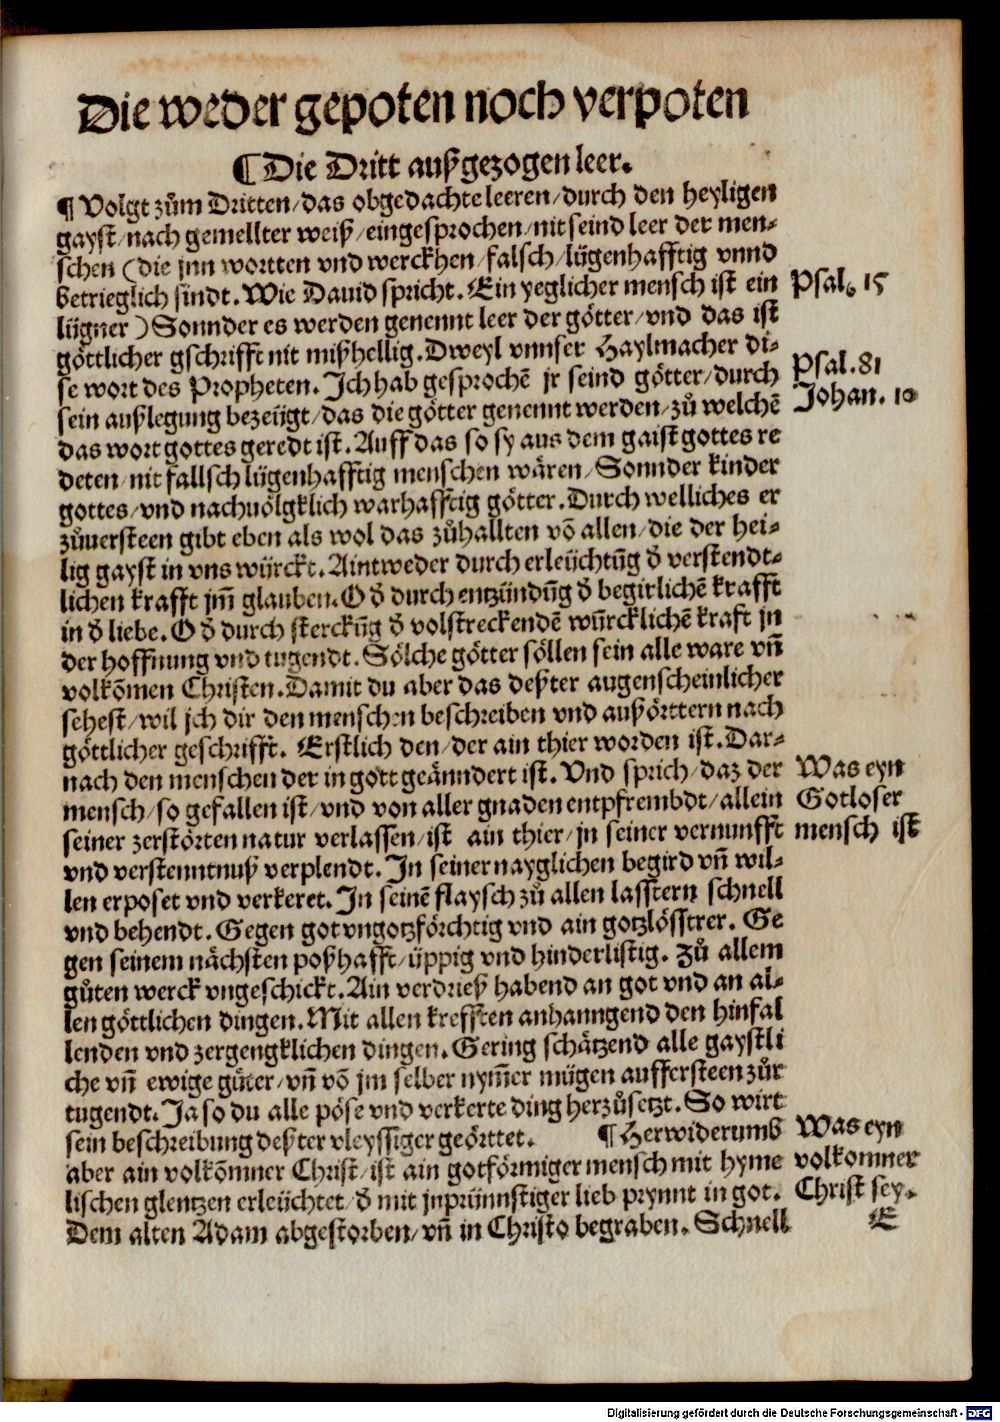 Die weder gepoten noch verpoten
¶ Die Dritt außgezogen leer.
¶ Volgt zům Dritten/das obgedachte leeren/durch den heyligen
gayst/nach gemellter weiß/eingesprochen/nit seind leer der men-
schen (die jnn wortten vnd werckhen/falsch/lügenhafftig vnnd
betrieglich sindt. Wie Dauid spricht. Ein yeglicher mensch ist ein
Psal. 15
lügner) Sonnder es werden genennt leer der götter/vnd das ist
göttlicher gschrifft nit mißhellig. Dweyl vnnser Haylmacher di-
se wort des Propheten. Ich hab gesprochē jr seind götter/durch
Psal. 81
sein außlegung bezeügt/das die götter genennt werden/zů welchē
Johan. 10
das wort gottes geredt ist. Auff das so sy aus dem gaist gottes re
deten/nit fallsch lügenhafftig menschen wären/Sonnder kinder
gottes/vnd nachuölgklich warhafftig götter. Durch welliches er
zůuersteen gibt eben als wol das zůhallten vō allen/die der hei-
lig gayst in vns wÿrckt. Aintweder durch erleüchtūg d̄ verstendt-
lichen krafft jm̄ glauben. O d̄ durch entzündūg d̄ begirlichē krafft
in d̄ liebe. O d̄ durch sterckūg d̄ volstreckendē wūrcklichē kraft jn
der hoffnung vnd tugendt. Sölche götter söllen sein alle ware vn̄
volkōmen Christen. Damit du aber das deßter augenscheinlicher
sehest/wil jch dir den menschen beschreiben vnd außörttern nach
göttlicher geschrifft. Erstlich den/der ain thier worden ist. Dar-
nach den menschen der in gott geänndert ist. Vnd sprich/daz der
Was eyn
mensch/so gefallen ist/vnd von aller gnaden entpfrembdt/allein
Gotloser
seiner zerstörten natur verlassen/ist ain thier/jn seiner vernunfft
mensch ist
vnd verstenntnuß verplendt. In seiner nayglichen begird vn̄ wil-
len erposet vnd verkeret. In seinē flaysch zů allen lasstern schnell
vnd behendt. Gegen got vngotzförchtig vnd ain gotzlösstrer. Ge
gen seinem nächsten poßhafft/üppig vnd hinderlistig. Zů allem
gůten werck vngeschickt. Ain verdrieß habend an got vnd an al-
len göttlichen dingen. Mit allen krefften anhanngend den hinfal
lenden vnd zergengklichen dingen. Gering schätzend alle gaystli
che vn̄ ewige gůter/vn̄ vō jm selber nym̄er mügen auffersteen zůr
tugendt. Ja so du alle pöse vnd verkerte ding herzůsetzt. So wirt
sein beschreibung deßter vleyssiger geörttet. ¶ Herwiderumb
Was eyn
aber ain volkōmner Christ/ist ain gotförmiger mensch mit hyme
volkomner
lischen glentzen erleüchtet/d̄ mit jnprünnstiger lieb prynnt in got.
Christ sey.
Dem alten Adam abgestorben/vn̄ in Christo begraben. Schnell
E
Digitalisierung gefördert durch die Deutsche Forschungsgemeinschaft - DFG